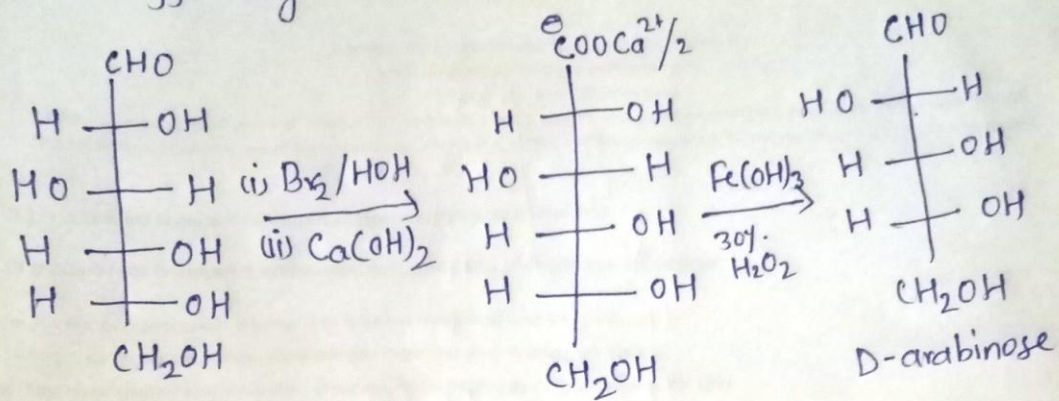 CHO
H OH
HO H
H OH
H OH
CH₂OH
(i) Br₂/HOH
(ii) Ca(OH)₂
⊖
COOCa²⁺/2
H OH
HO H
H OH
H OH
CH₂OH
Fe(OH)₃
30%.
H₂O₂
CHO
HO H
H OH
H OH
CH₂OH
D-arabinose